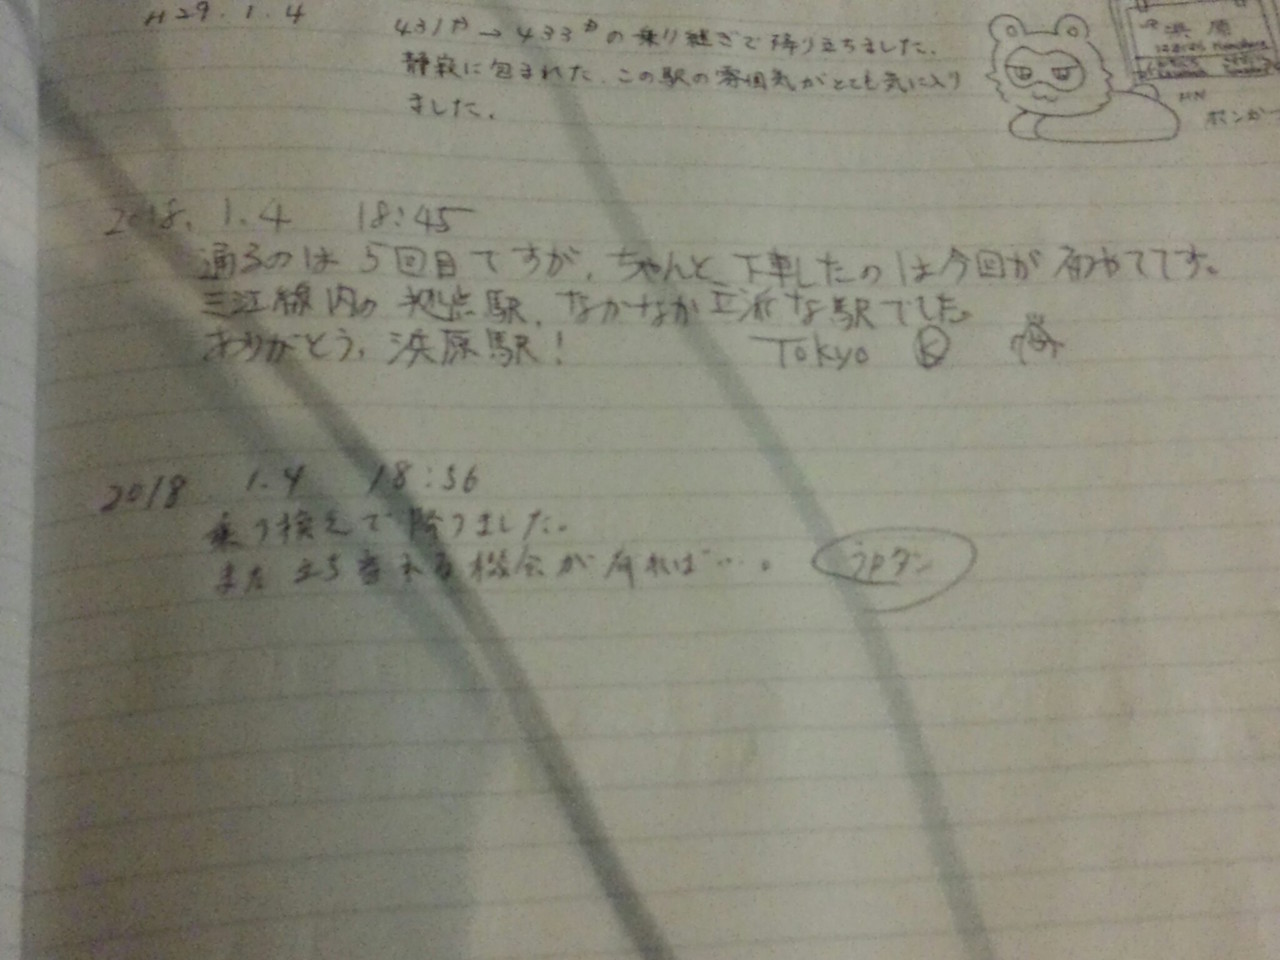 H29.1.4
431D→433Dの乗り継ぎで降り立ちました.
静寂に包まれた、この駅の雰囲気がとても気に入り
ました.
浜原
HN
ポンポ
2018. 1.4 18:45
通るのは5回目ですが、ちゃんと下車したのは今回が初めてです。
三江線内の拠点駅、なかなか立派な駅でした。
ありがとう、浜原駅! Tokyo K
2018 1.4 18:36
乗り換えで降りました。
また立ち寄れる機会が有れば…。